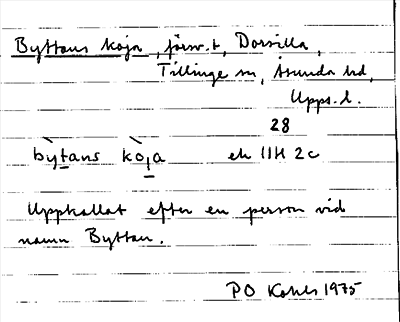 Byttans koja, försv. t, Dorsilla,
Tillinge sn, Åsunda hd,
Upps. l.
28
bỳtans kò̀ja ek 11H 2c
Uppkallat efter en person vid
namn Byttan.
PO Kohls 1975